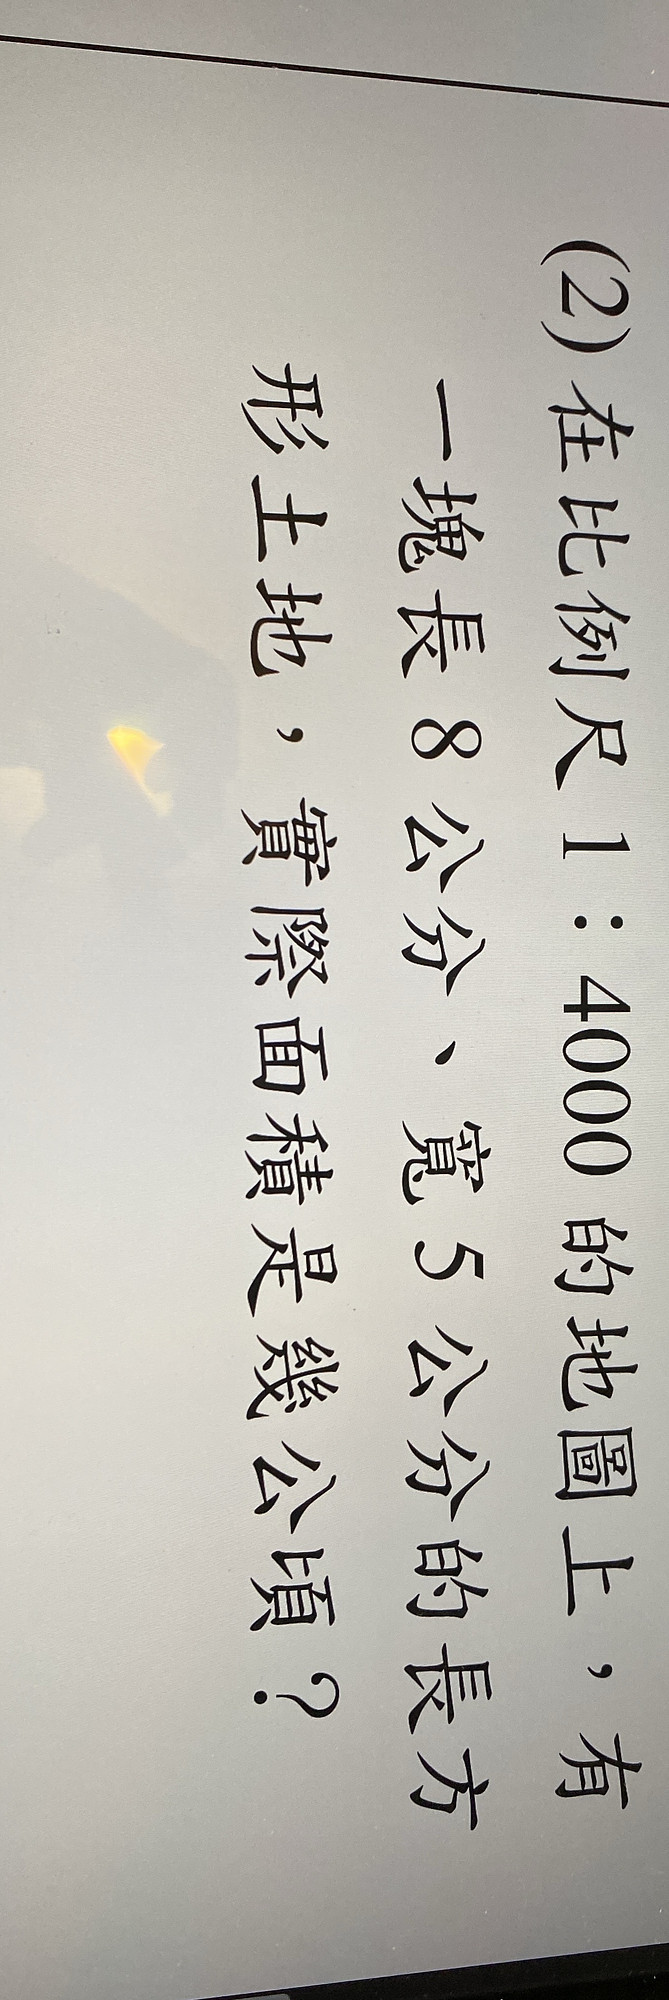 (2) 在比例尺 1：4000 的地圖上，有
一塊長 8 公分、寬 5 公分的長方
形土地，實際面積是幾公頃？